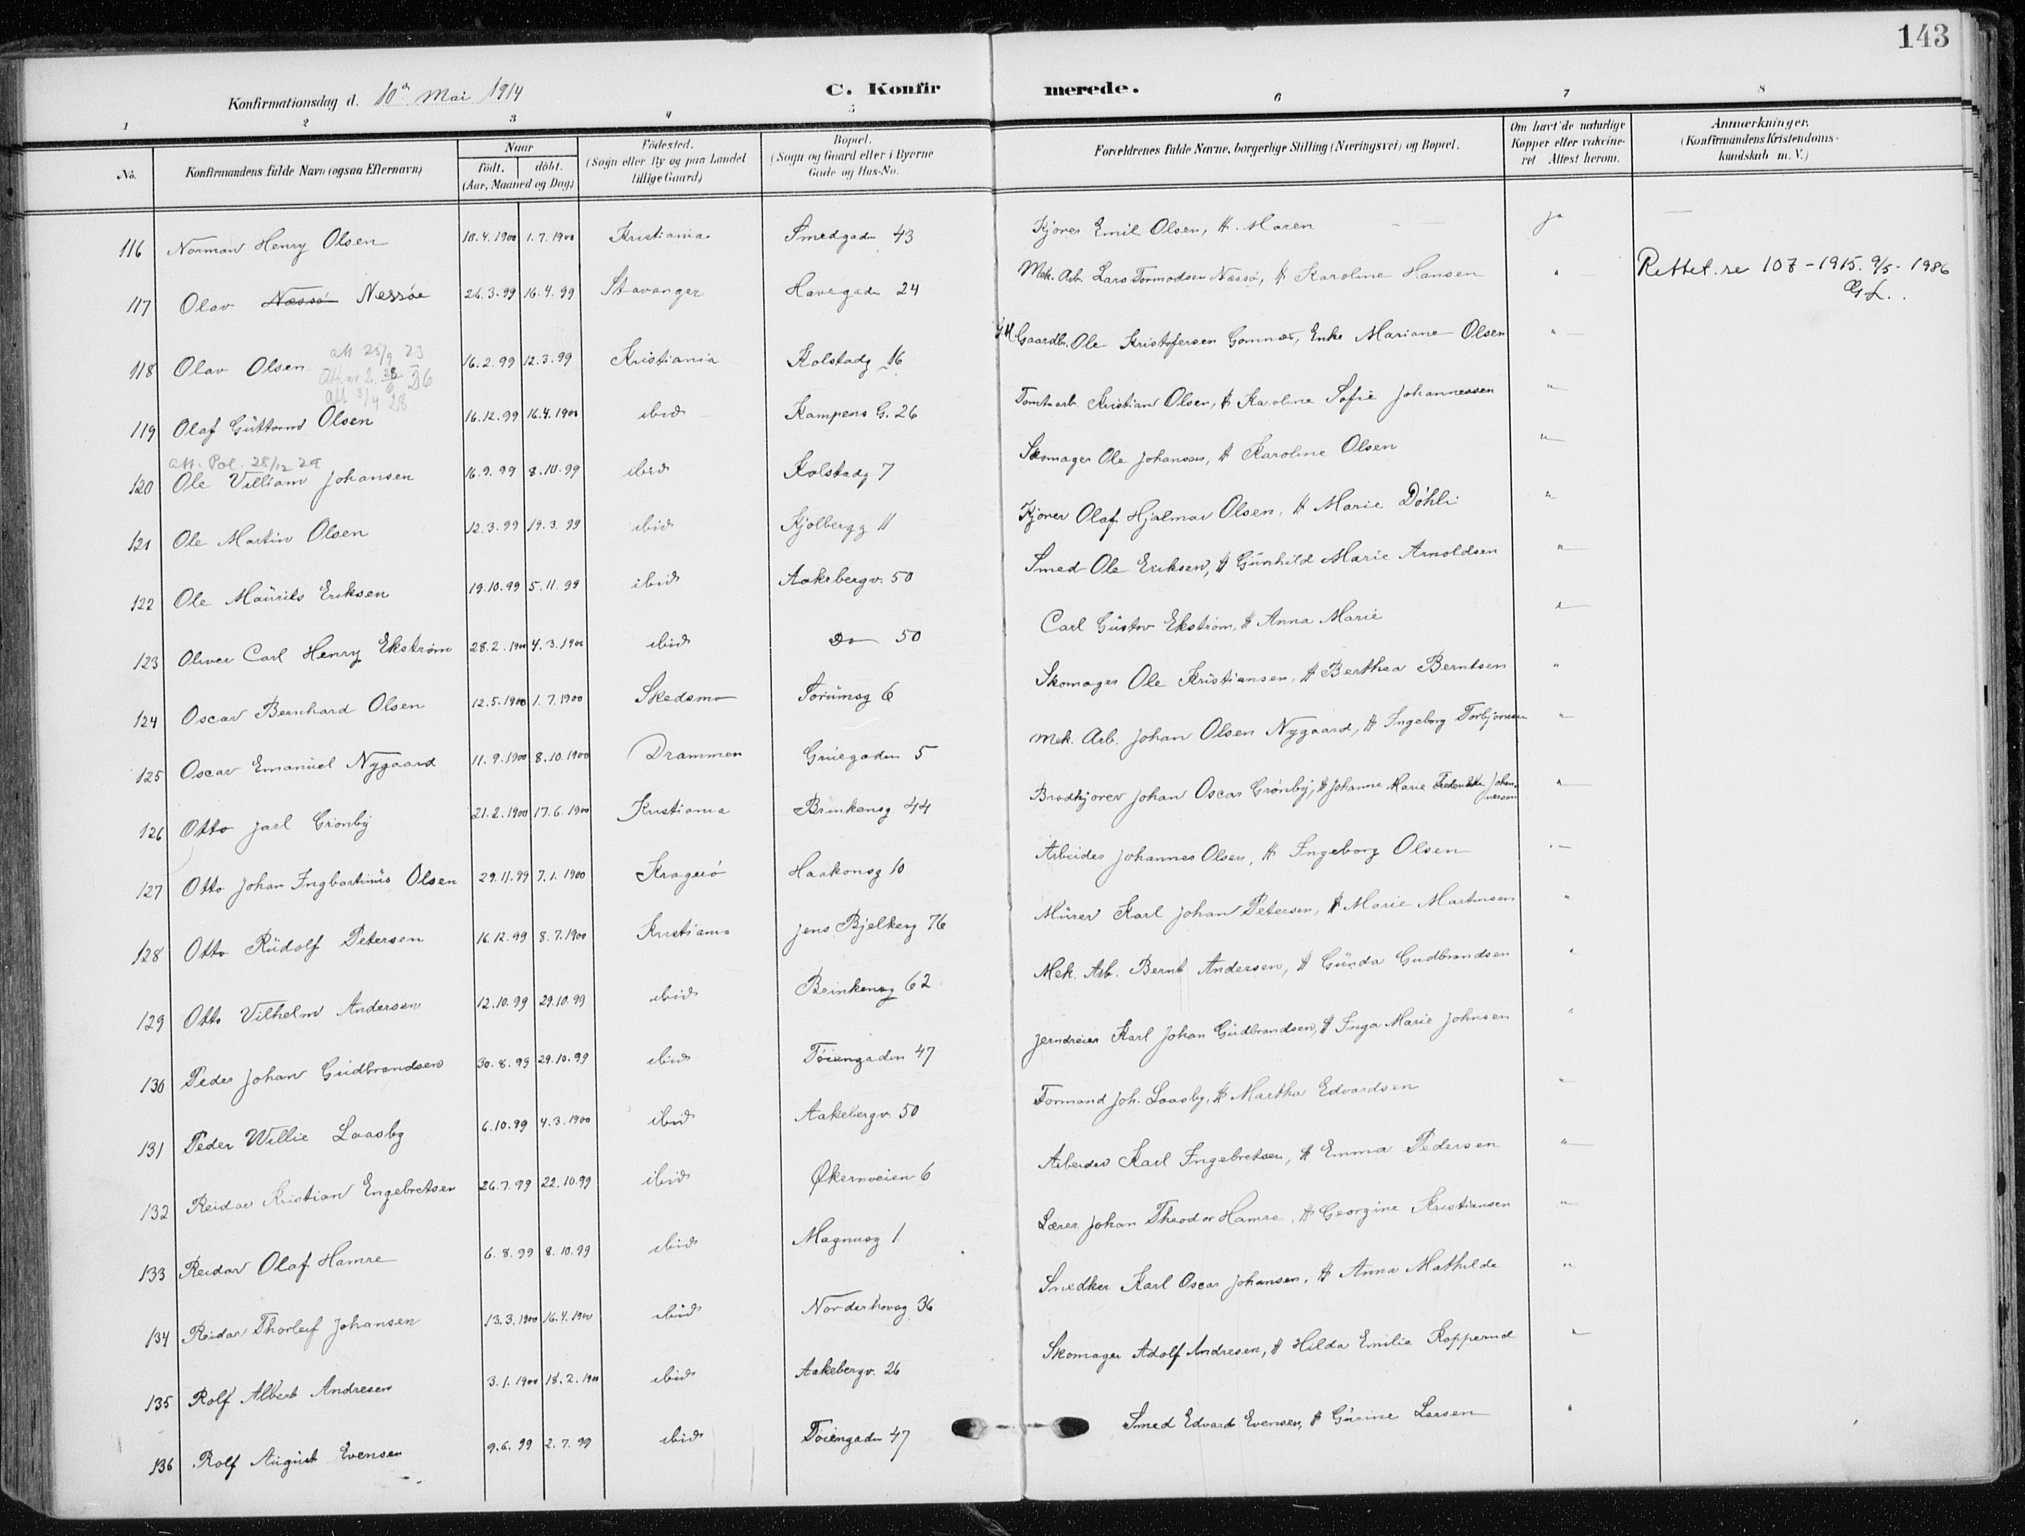 143
Konfirmationsdag d. 10de Mai 1914
C. Konfirmerede.
1 2 3 4 5 6 7 8
No. Konfirmandens fulde Navn (ogsaa Efternavn) Naar født. døbt. (Aar, Maaned og Dag) Fødested. (Sogn eller By og paa Landet tillige Gaard) Bopæl. (Sogn og Gaard eller i Byerne Gade og Hus-No. Forældrenes fulde Navne, borgerlige Stilling (Næringsvei) og Bopæl. Om havt de naturlige Kopper eller vakcineret Attest herom. Anmerkninger. (Konfirmandens Kristendomskundskab m. V.)
116 Norman Henry Olsen 10.4.1900 1.7.1900 Kristiania Smedgaden 43 Kjører Emil Olsen, H. Maren ja
117 Olav Næssø Næssøe 26.3.99 16.4.99 Stavanger Havegaden 24 Mek. Arb. Lars Tormodsen Næssø, H Karoline Hansen " Rettet. se 107-1915. 9/5-1986
118 Olav Olsen 16.2.99 12.3.99 Kristiania Kolstadg 16 Gaardb. Ole Kristofersen Gomnæs, Enke Mariane Olsen "
att 25/9 23
att 3/4 28
119 Olaf Guttorm Olsen 16.12.99 16.4.1900 ibid Kampens G. 26 Tomtearb. Kristian Olsen, H Karoline Sofie Johannessen "
att. Pol. 28/12 29
120 Ole Villiam Johansen 16.9.99 8.10.99 ibid Kolstadg 7 Skomager Ole Johansen, H Karoline Olsen "
121 Ole Martin Olsen 12.3.99 19.3.99 ibid Kjølbergg 11 Kjører Olaf Hjalmar Olsen, H Marie Døhli "
122 Ole Mauritz Eriksen 19.10.99 5.11.99 ibid Aakebergv. 50 Smed Ole Eriksen, H Gunhild Marie Arnoldsen "
123 Oliver Carl Henry Ekstrøm 28.2.1900 4.3.1900 ibid Do 50 Carl Gustav Ekstrøm, H Anna Marie "
124 Oscar Bernhard Olsen 12.5.1900 1.7.1900 Skedsmo Sørumsg 6 Skomager Ole Kristiansen, H Berthea Berntsen "
125 Oscar Emanuel Nygaard 11.9.1900 8.10.1900 Drammen Gruegaden 5 Mek. Arb. Johan Olsen Nygaard, H Ingeborg Torbjørnsen "
126 Otto Jarl Grønby 21.2.1900 17.6.1900 Kristiania Brinkensg 44 Brødkjører Johan Oscar Grønby, H Johanne Marie Fredrikke Johannessen "
127 Otto Johan Ingbartinus Olsen 29.11.99 7.1.1900 Kragerø Haakonsg 10 Arbeider Johannes Olsen, H Ingeborg Olsen "
128 Otto Rudolf Petersen 16.12.99 8.7.1900 Kristiania Jens Bjelkesg 76 Murer Karl Johan Petersen, H Marie Martinsen "
129 Otto Vilhelm Andersen 12.10.99 29.10.99 ibid Brinkensg 62 Mek. Arb. Bernt Andersen, H Gunda Gudbrandsen "
130 Peder Johan Gudbrandsen 30.8.99 29.10.99 ibid Tøiengaden 47 Jerndreier Karl Johan Gudbrandsen, H Inga Marie Johnsen "
131 Peder Willie Laasby 6.10.99 4.3.1900 ibid Aakebergv. 50 Formand Joh. Laasby, H Martha Edvardsen "
132 Reidar Kristian Engebretsen 26.7.99 22.10.99 ibid Økernveien 6 Arbeider Karl Ingebretsen, H Emma Pedersen "
133 Reidar Olaf Hamre 6.8.99 8.10.99 ibid Magnusg 1 Lærer Johan Theodor Hamre, H Georgine Kristiansen "
134 Reidar Thorleif Johansen 13.3.1900 16.4.1900 ibid Norderhovsg 36 Snedker Karl Oscar Johansen, H Anna Mathilde "
135 Rolf Albert Andresen 3.1.1900 18.2.1900 ibid Aakebergv. 26 Skomager Adolf Andresen, H Hilda Emilie Koppernd "
136 Rolf August Evensen 9.6.99 2.7.99 ibid Tøiengaden 47 Smed Edvard Evensen, H Gurine Larsen "